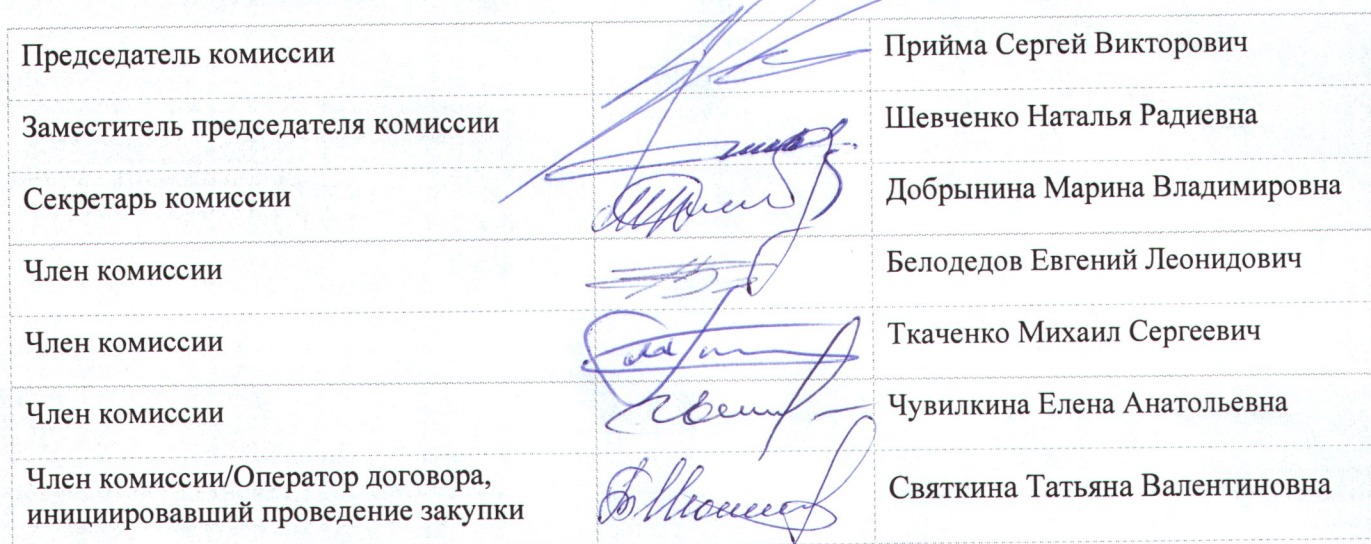 Председатель комиссии Прийма Сергей Викторович
Заместитель председателя комиссии Шевченко Наталья Радиевна
Секретарь комиссии Добрынина Марина Владимировна
Член комиссии Белодедов Евгений Леонидович
Член комиссии Ткаченко Михаил Сергеевич
Член комиссии Чувилкина Елена Анатольевна
Член комиссии/Оператор договора, Святкина Татьяна Валентиновна
инициировавший проведение закупки